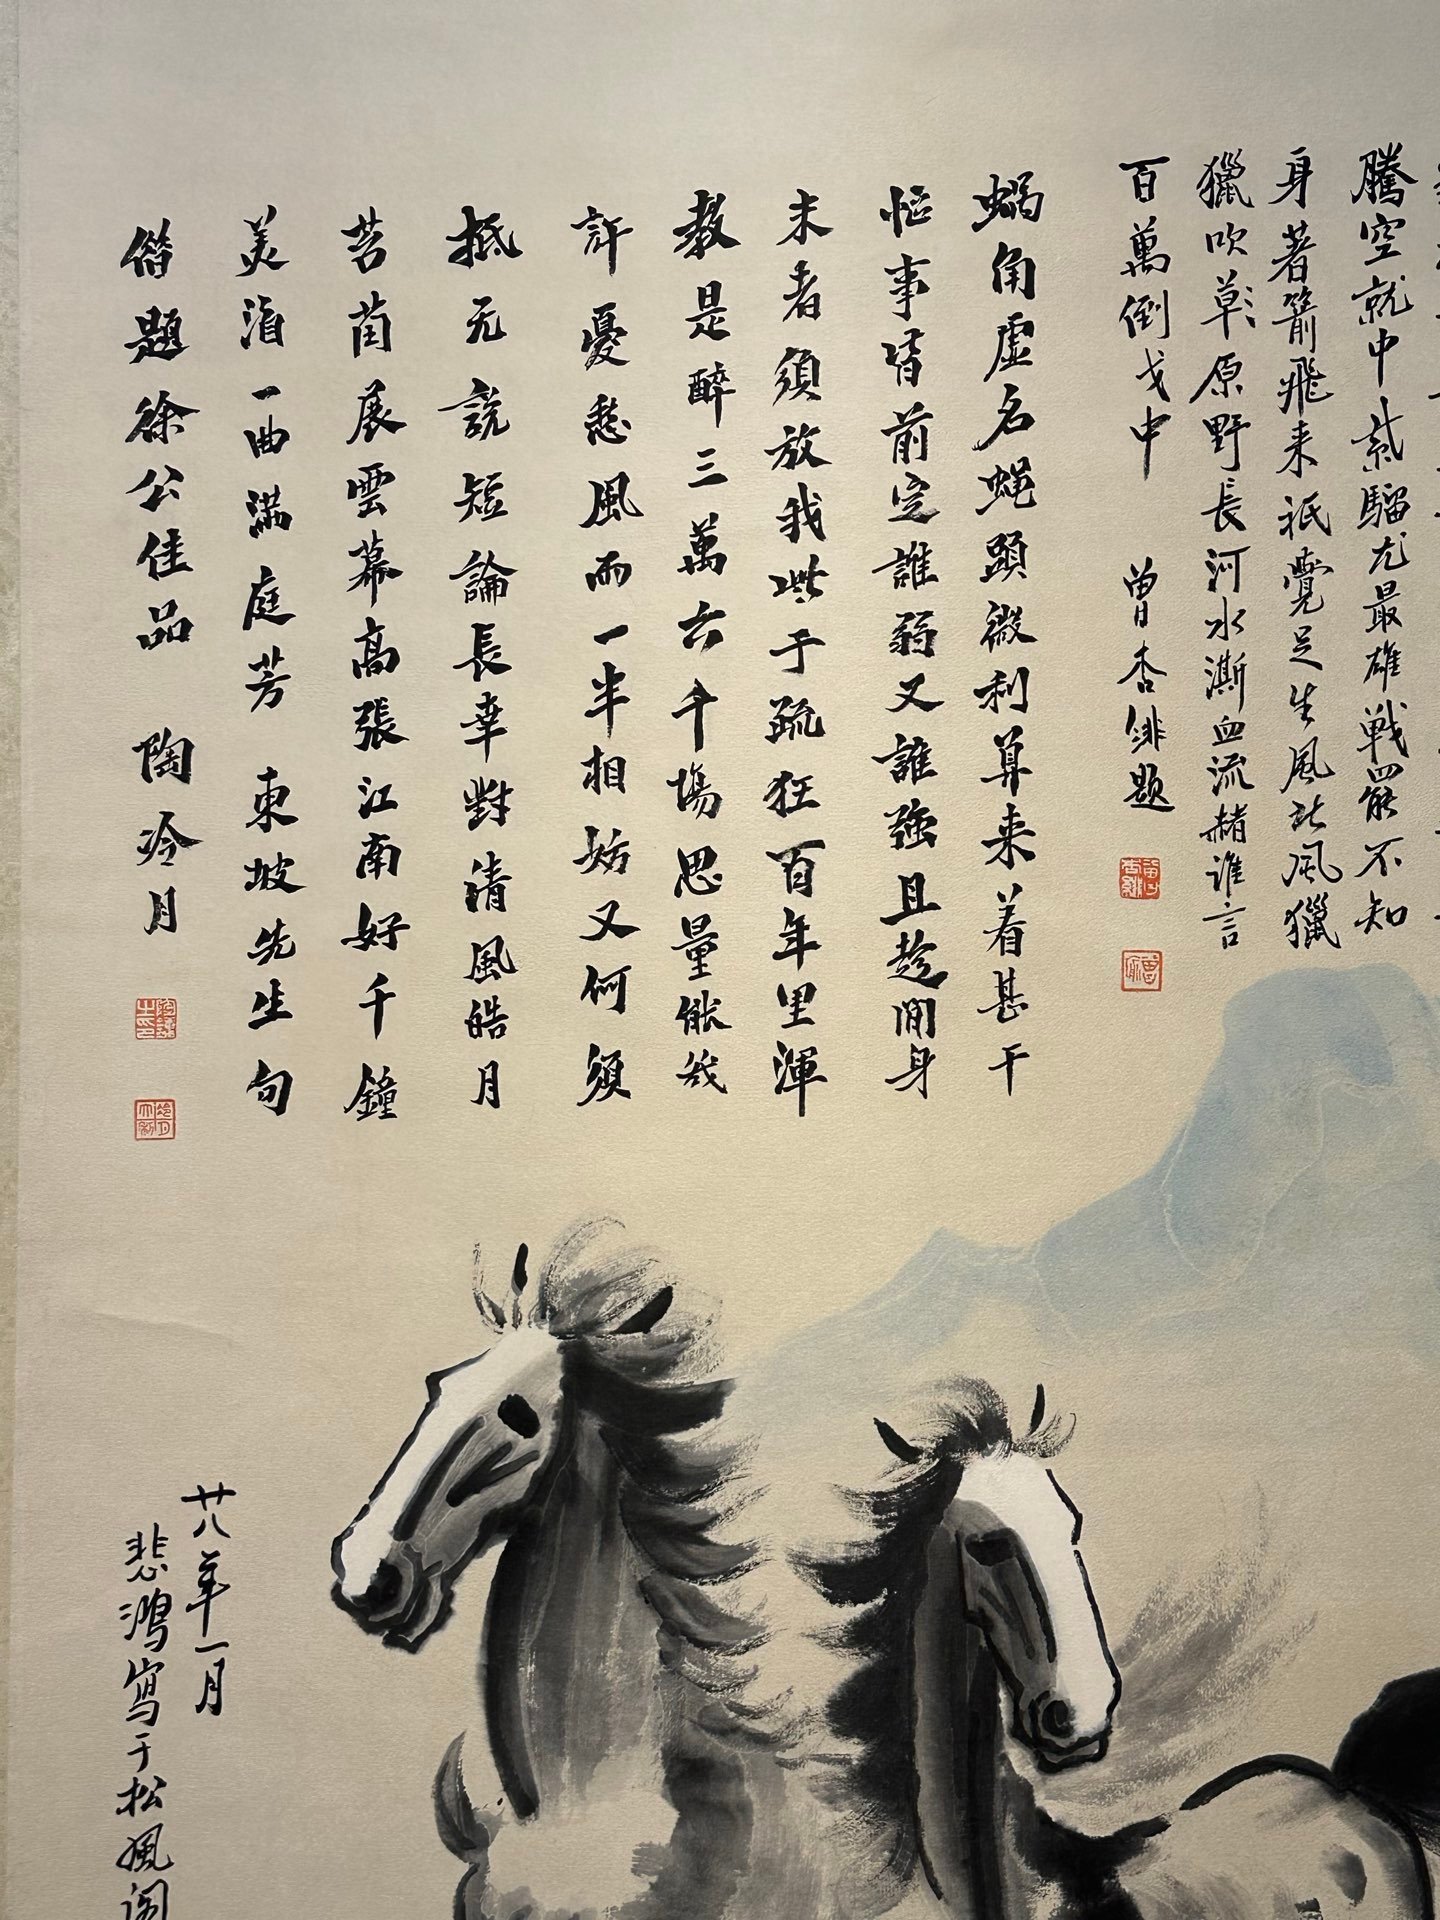 騰空就中紫騮尤最雄戰罷不知
身著箭飛来祇覺足生風北風獵
獵吹草原野長河水澌血流赭誰言
百萬倒戈中
曽杏緋题
蝸角虚名蝇頭微利算来着甚干
忙事皆前定誰弱又誰強且趁閒身
未老須放我些于疏狂百年里渾
教是醉三萬六千場思量能幾
許憂愁風雨一半相妨又何須
抵死説短論長幸對清風皓月
苔茵展雲幕高張江南好千鐘
美酒一曲满庭芳 東坡先生句
借题徐公佳品 陶冷月
廿八年一月
悲鴻寫于松風阁